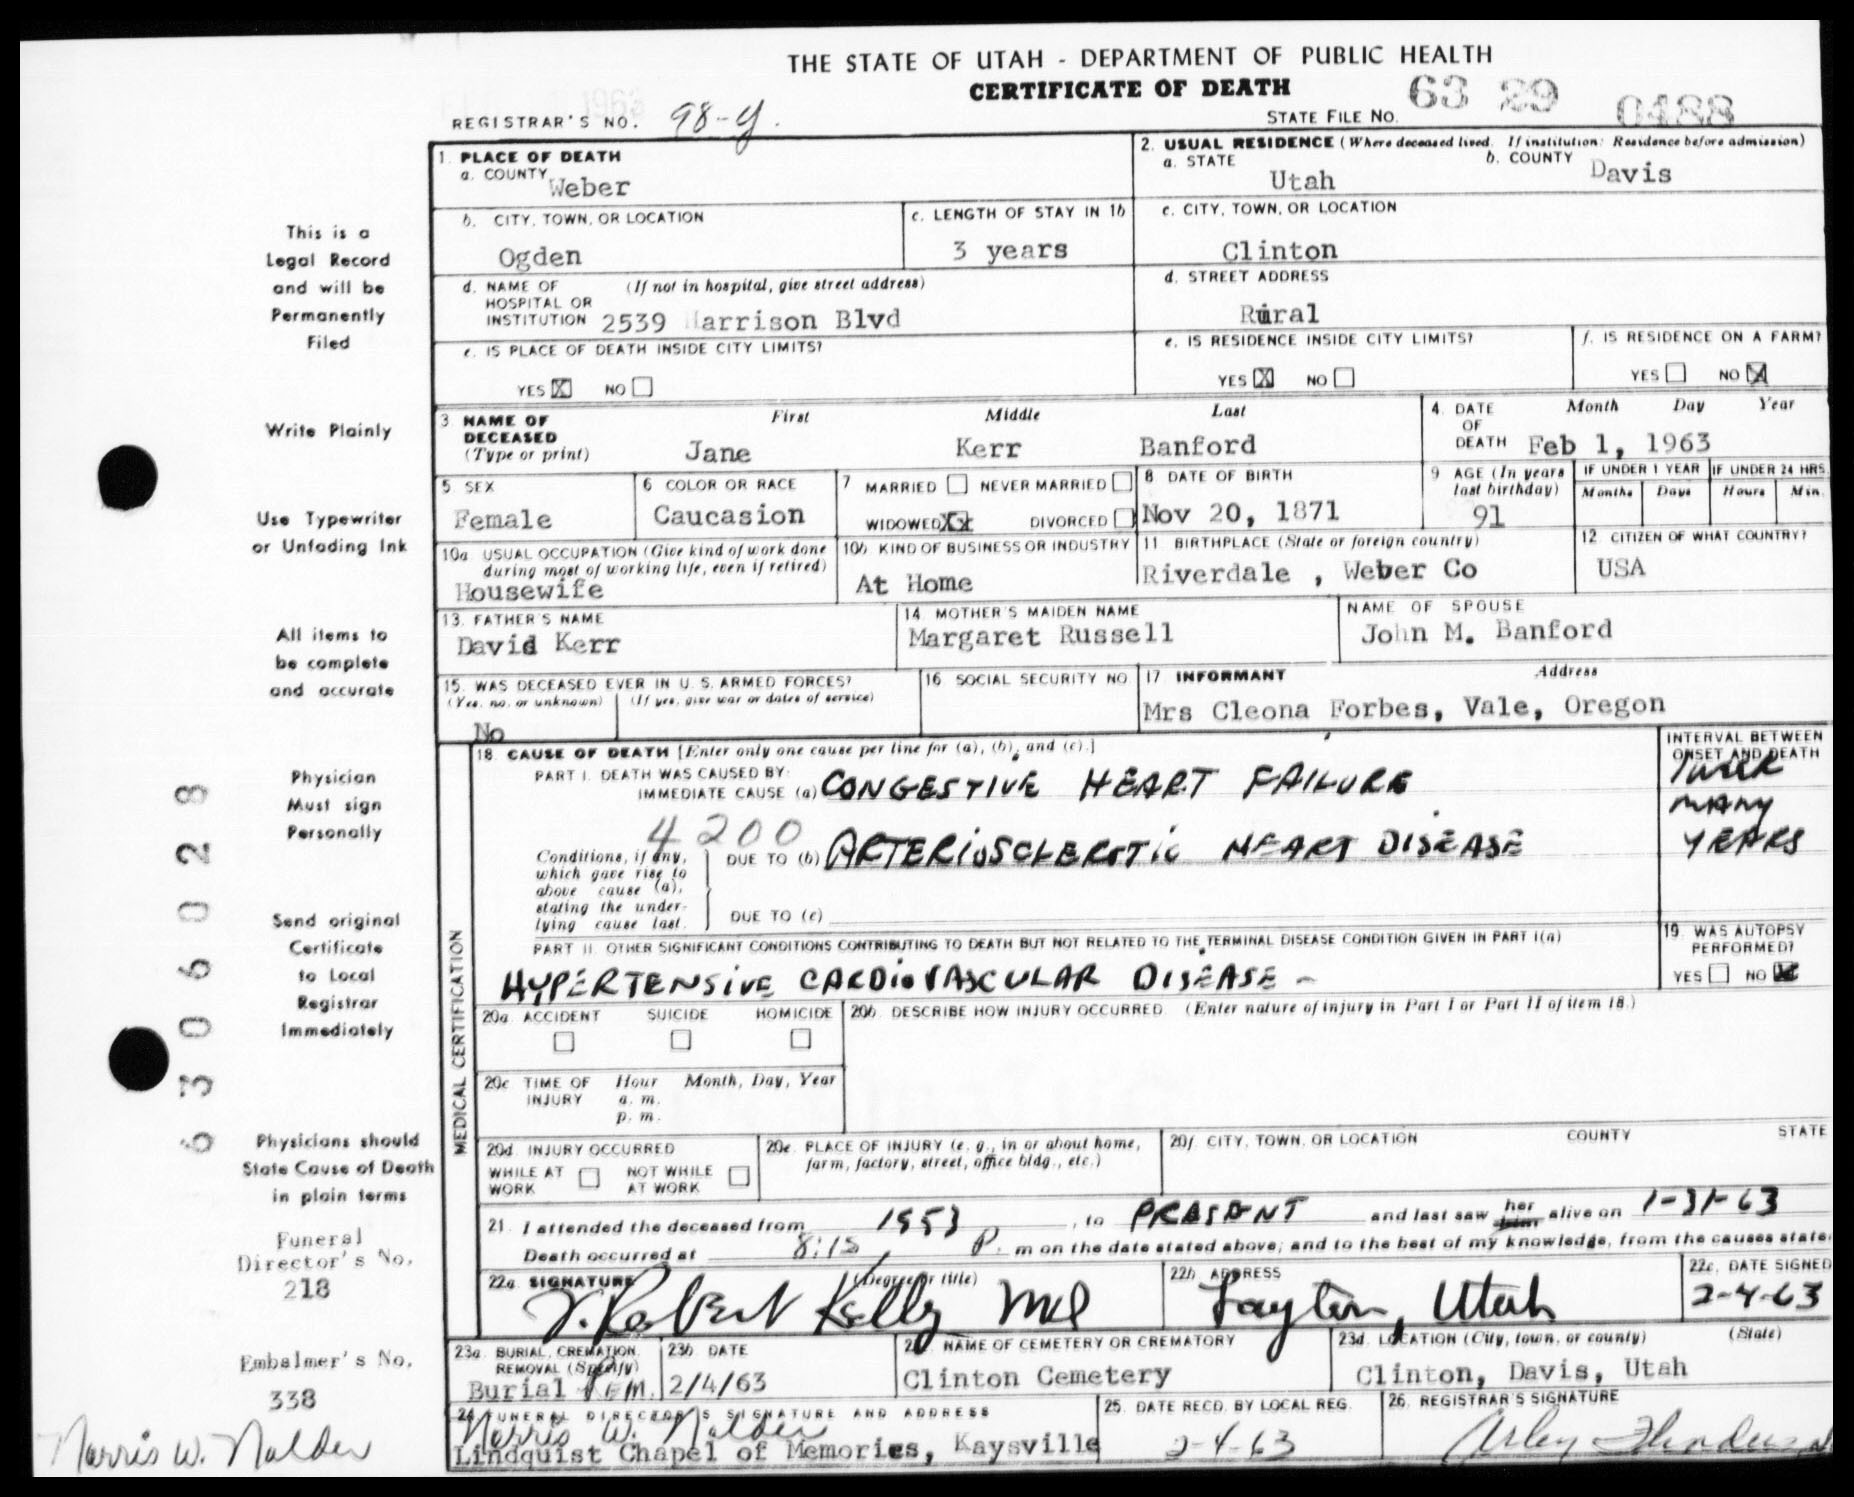 THE STATE OF UTAH - DEPARTMENT OF PUBLIC HEALTH
CERTIFICATE OF DEATH
REGISTRAR'S NO. 98-y.
STATE FILE NO. 63 29 0488
1. PLACE OF DEATH
a. COUNTY
Weber
2. USUAL RESIDENCE (Where deceased lived. If institution: Residence before admission)
a. STATE
Utah
b. COUNTY
Davis
b. CITY, TOWN, OR LOCATION
Ogden
c. LENGTH OF STAY IN 1b
3 years
c. CITY, TOWN, OR LOCATION
Clinton
d. NAME OF HOSPITAL OR INSTITUTION (If not in hospital, give street address)
2539 Harrison Blvd
d. STREET ADDRESS
Rural
e. IS PLACE OF DEATH INSIDE CITY LIMITS?
YES X NO
e. IS RESIDENCE INSIDE CITY LIMITS?
YES X NO
f. IS RESIDENCE ON A FARM?
YES NO X
3. NAME OF DECEASED (Type or print)
First Middle Last
Jane Kerr Banford
4. DATE OF DEATH
Month Day Year
Feb 1, 1963
5. SEX
Female
6 COLOR OR RACE
Caucasion
7 MARRIED NEVER MARRIED
WIDOWED Xx DIVORCED
8 DATE OF BIRTH
Nov 20, 1871
9 AGE (In years last birthday)
91
IF UNDER 1 YEAR
Months Days
IF UNDER 24 HRS.
Hours Min.
10a USUAL OCCUPATION (Give kind of work done during most of working life, even if retired)
Housewife
10b KIND OF BUSINESS OR INDUSTRY
At Home
11 BIRTHPLACE (State or foreign country)
Riverdale , Weber Co
12 CITIZEN OF WHAT COUNTRY?
USA
13. FATHER'S NAME
David Kerr
14. MOTHER'S MAIDEN NAME
Margaret Russell
NAME OF SPOUSE
John M. Banford
15. WAS DECEASED EVER IN U. S. ARMED FORCES?
(Yes, no, or unknown) (If yes, give war or dates of service)
No
16 SOCIAL SECURITY NO.
17 INFORMANT Address
Mrs Cleona Forbes, Vale, Oregon
MEDICAL CERTIFICATION
18 CAUSE OF DEATH [Enter only one cause per line for (a), (b), and (c).]
INTERVAL BETWEEN ONSET AND DEATH
PART I. DEATH WAS CAUSED BY:
IMMEDIATE CAUSE (a) CONGESTIVE HEART FAILURE
1 WEEK
4200
Conditions, if any, which gave rise to above cause (a), stating the underlying cause last.
DUE TO (b) ARTERIOSCLEROTIC HEART DISEASE
MANY YEARS
DUE TO (c)
PART II. OTHER SIGNIFICANT CONDITIONS CONTRIBUTING TO DEATH BUT NOT RELATED TO THE TERMINAL DISEASE CONDITION GIVEN IN PART I(a)
HYPERTENSIVE CARDIOVASCULAR DISEASE -
19. WAS AUTOPSY PERFORMED?
YES NO X
20a. ACCIDENT SUICIDE HOMICIDE
20b. DESCRIBE HOW INJURY OCCURRED. (Enter nature of injury in Part I or Part II of item 18.)
20c TIME OF INJURY Hour Month, Day, Year
a. m.
p. m.
20d. INJURY OCCURRED
WHILE AT WORK NOT WHILE AT WORK
20e. PLACE OF INJURY (e. g., in or about home, farm, factory, street, office bldg., etc.)
20f. CITY, TOWN, OR LOCATION COUNTY STATE
21. I attended the deceased from 1953, to PRESENT and last saw her him alive on 1-31-63
Death occurred at 8:15 P. m on the date stated above; and to the best of my knowledge, from the causes state
22a. SIGNATURE (Degree or title)
J. Robert Kelly Md
22b. ADDRESS
Layton, Utah
22c. DATE SIGNED
2-4-63
23a. BURIAL, CREMATION, REMOVAL (Specify)
Burial REM.
23b DATE
2/4/63
23c NAME OF CEMETERY OR CREMATORY
Clinton Cemetery
23d. LOCATION (City, town, or county) (State)
Clinton, Davis, Utah
24. FUNERAL DIRECTOR'S SIGNATURE AND ADDRESS
Norris W. Nalder
Lindquist Chapel of Memories, Kaysville
25. DATE RECD. BY LOCAL REG.
2-4-63
26. REGISTRAR'S SIGNATURE
This is a
Legal Record
and will be
Permanently
Filed
Write Plainly
Use Typewriter
or Unfading Ink
All items to
be complete
and accurate
Physician
Must sign
Personally
Send original
Certificate
to Local
Registrar
Immediately
Physicians should
State Cause of Death
in plain terms
Funeral
Director's No.
218
Embalmer's No.
338
Norris W. Nalder
630602 8